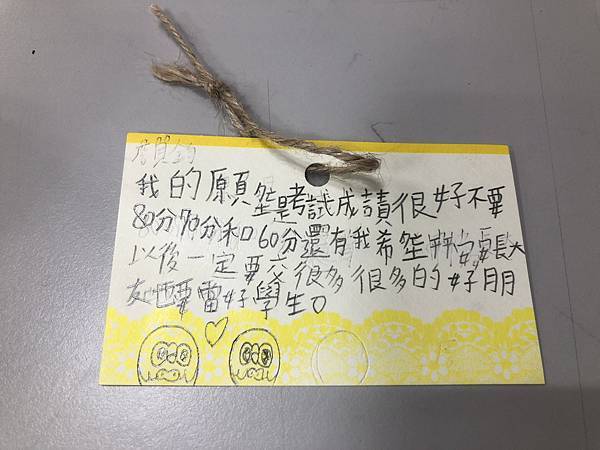 我的願望是考試成請很好不要
80分70分和60分還有我希望當長大
以後一定要交很多很多的好朋
友也要當好學生。